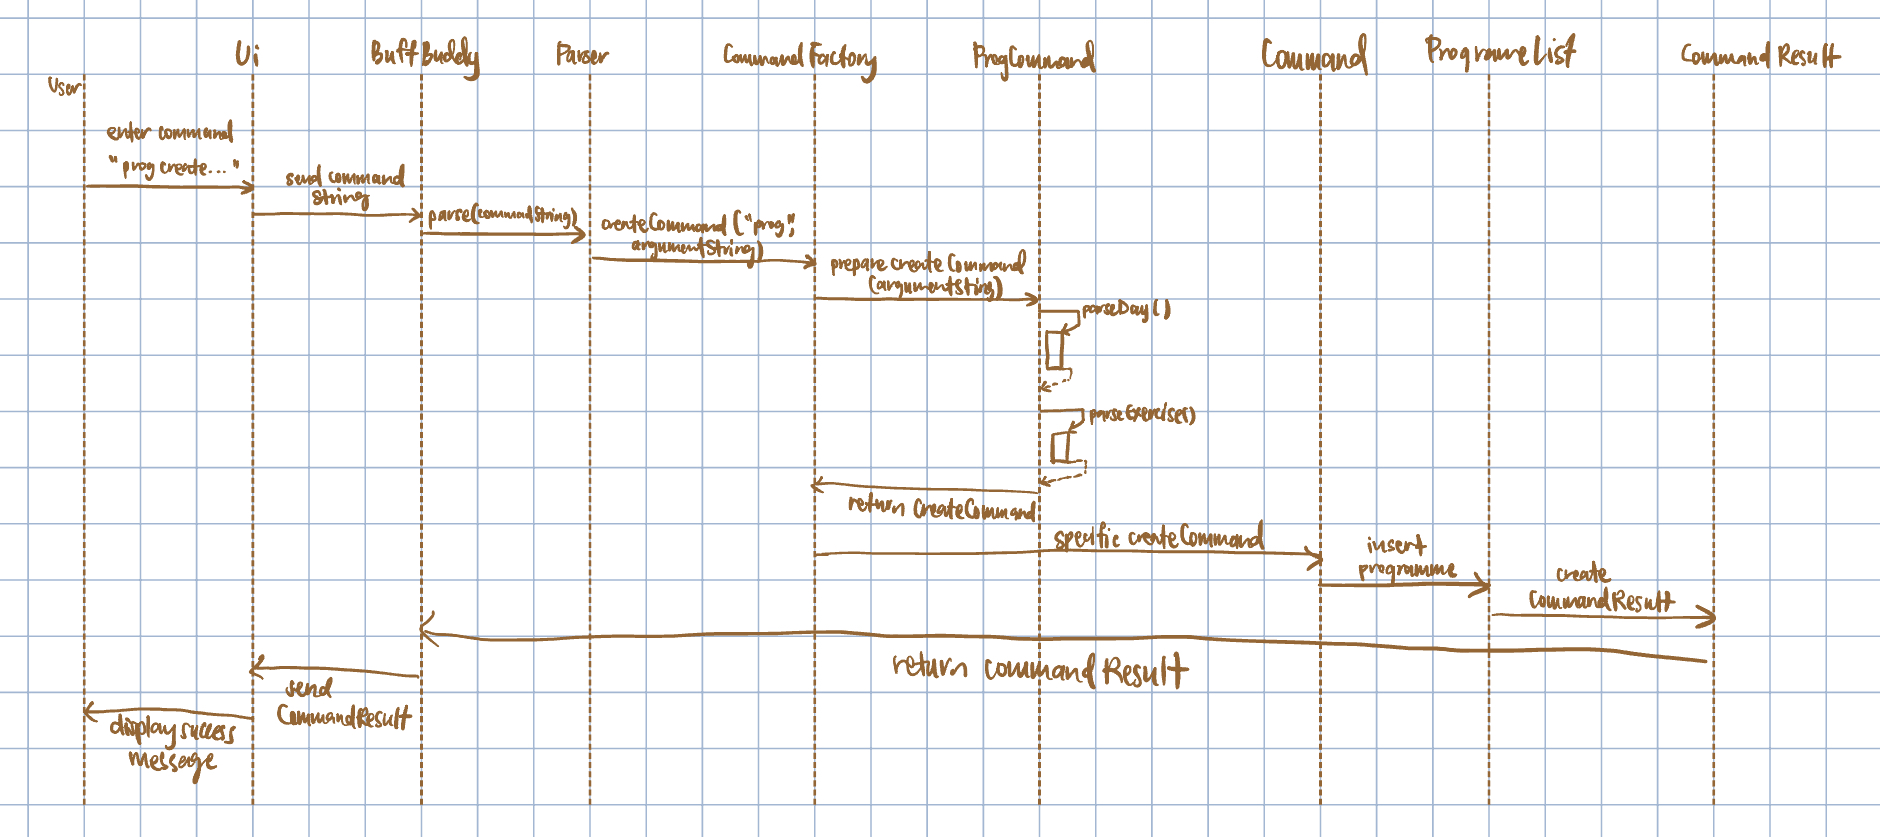 User
Ui
BuffBuddy
Parser
CommandFactory
ProgCommand
Command
ProgrameList
CommandResult
enter command
"prog create..."
send command
string
parse(commandString)
createCommand ("prog",
argumentString)
prepare createCommand
(argumentString)
parseDay()
parseExercise()
return CreateCommand
specific createCommand
insert
programme
create
CommandResult
return commandResult
send
CommandResult
display success
message